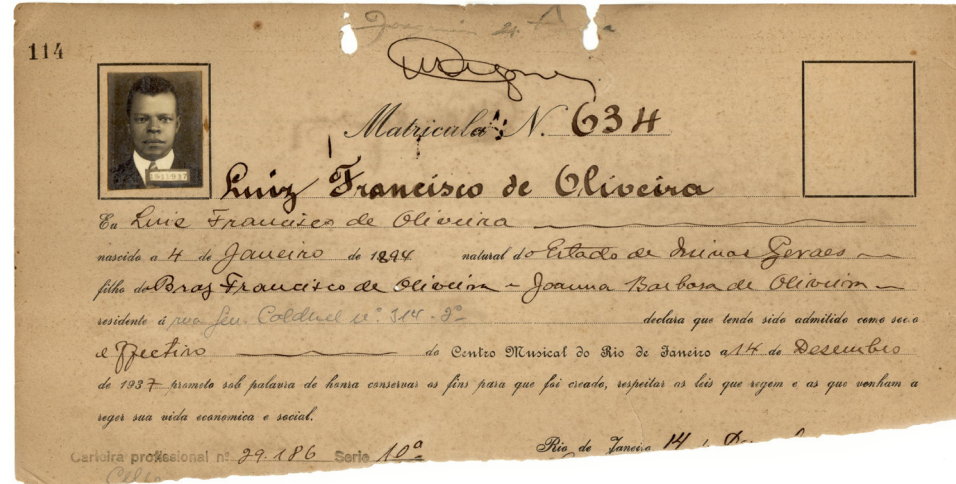 114
Matricula N. 634
1911937
Luiz Francisco de Oliveira
Eu Luiz Francisco de Oliveira
nascido a 4 de Janeiro de 1894 natural do Estado de Minas Geraes
filho de Braz Francisco de Oliveira - Joanna Barbosa de Oliveira
residente á rua Gen. Caldwel nº 314 - 2º declara que tendo sido admitido como socio
effectivo do Centro Musical do Rio de Janeiro a 14 de Desembro
de 1937 prometo sob palavra de honra conservar os fins para que foi creado, respeitar as leis que regem e as que venham a
reger sua vida economica e social.
Rio de Janeiro 14
Carteira profissional nº 29.186 Serie 10ª